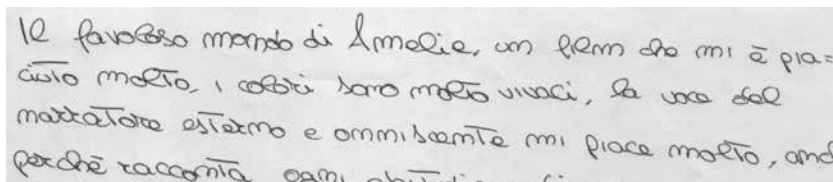 Il favoloso mondo di Amelie, un film che mi è pia=
ciuto molto, i colori sono molto vivaci, la voce del
narratore esterno e omniscente mi piace molto, anc
perchè racconta ogni